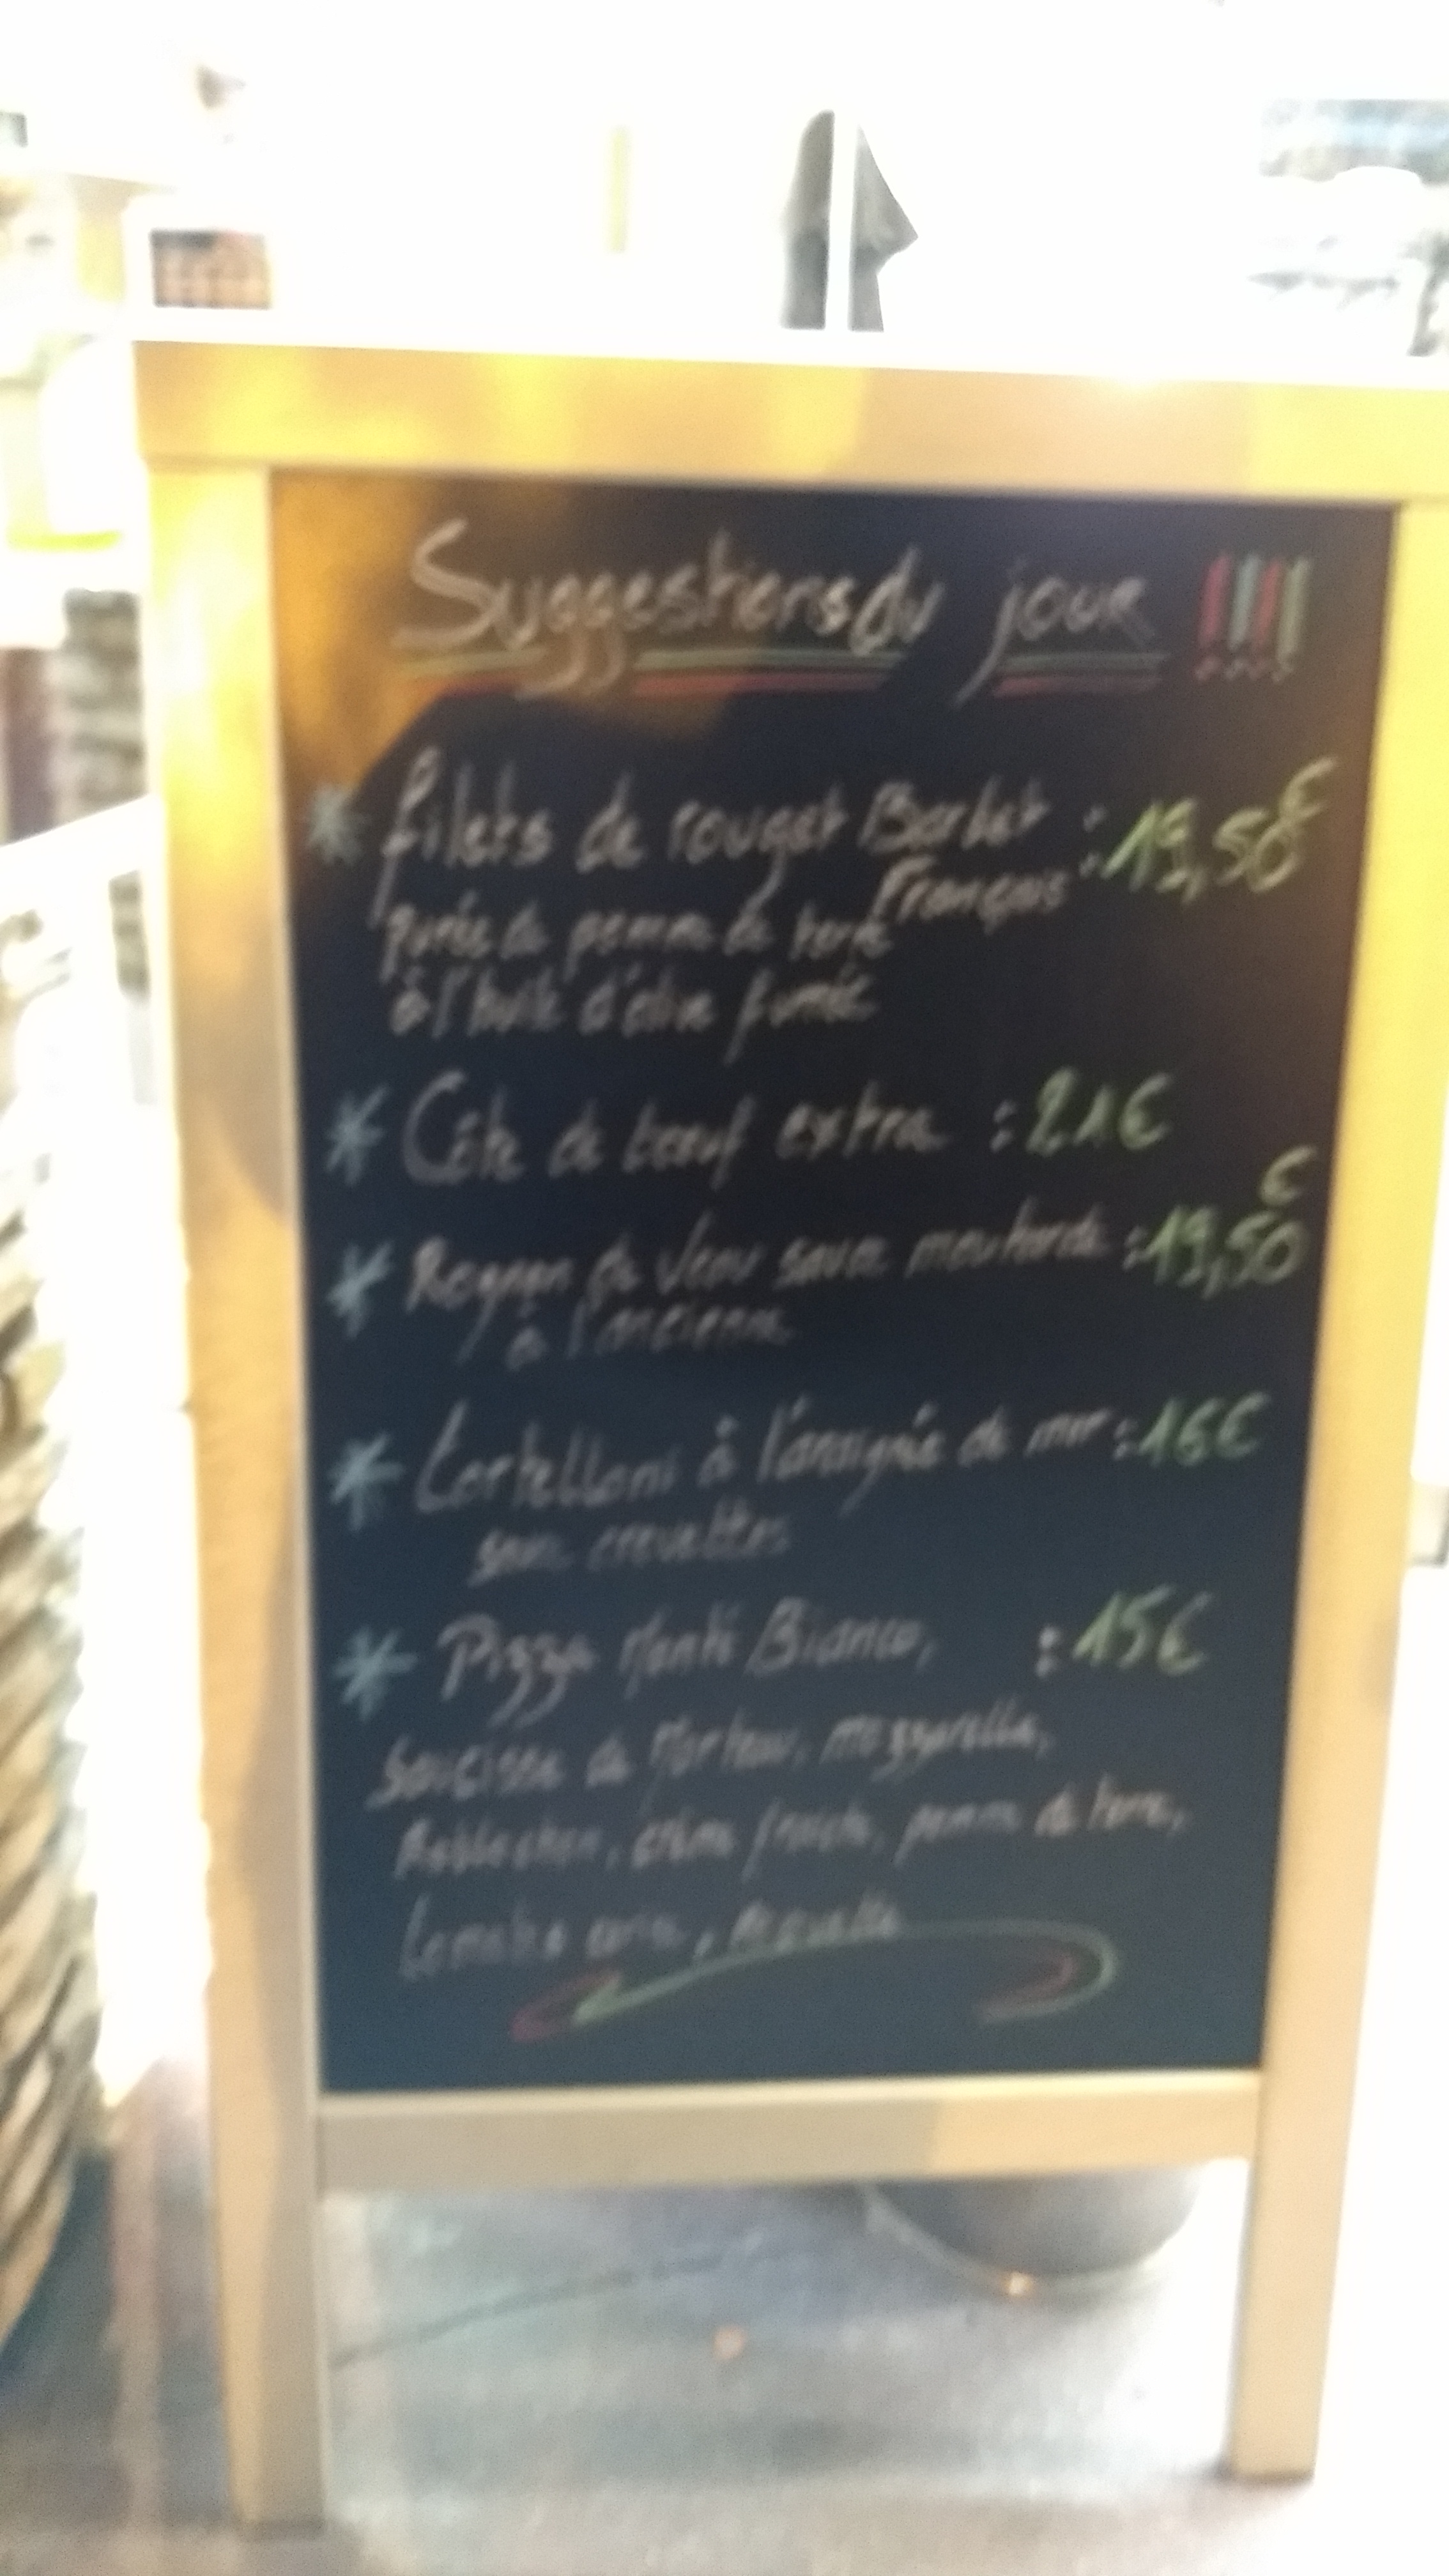 Suggestions du jour !!!!
* Filets de rouget Barbet : 19,50€
Français
purée de pomme de terre
à l'huile d'olive fumée
* Côte de boeuf extra : 21€
* Rognon de Veau sauce moutarde : 19,50€
à l'ancienne
* Tortelloni à l'araignée de mer : 16€
sauce crevettes
* Pizza Monte Bianco, : 15€
Saucisse de Morteau, mozzarella,
Reblochon, crème fraiche, pomme de terre,
tomates , roquette